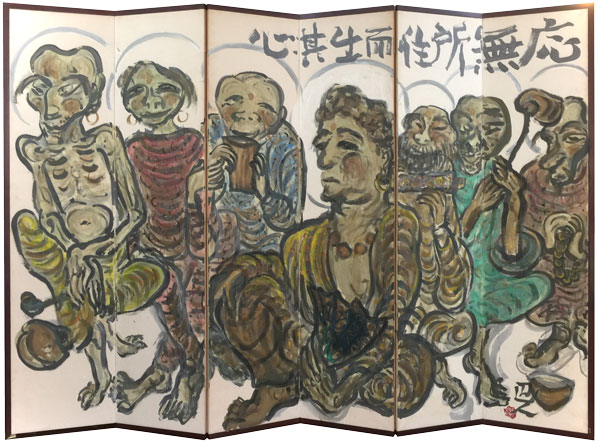 応無所住而生其心